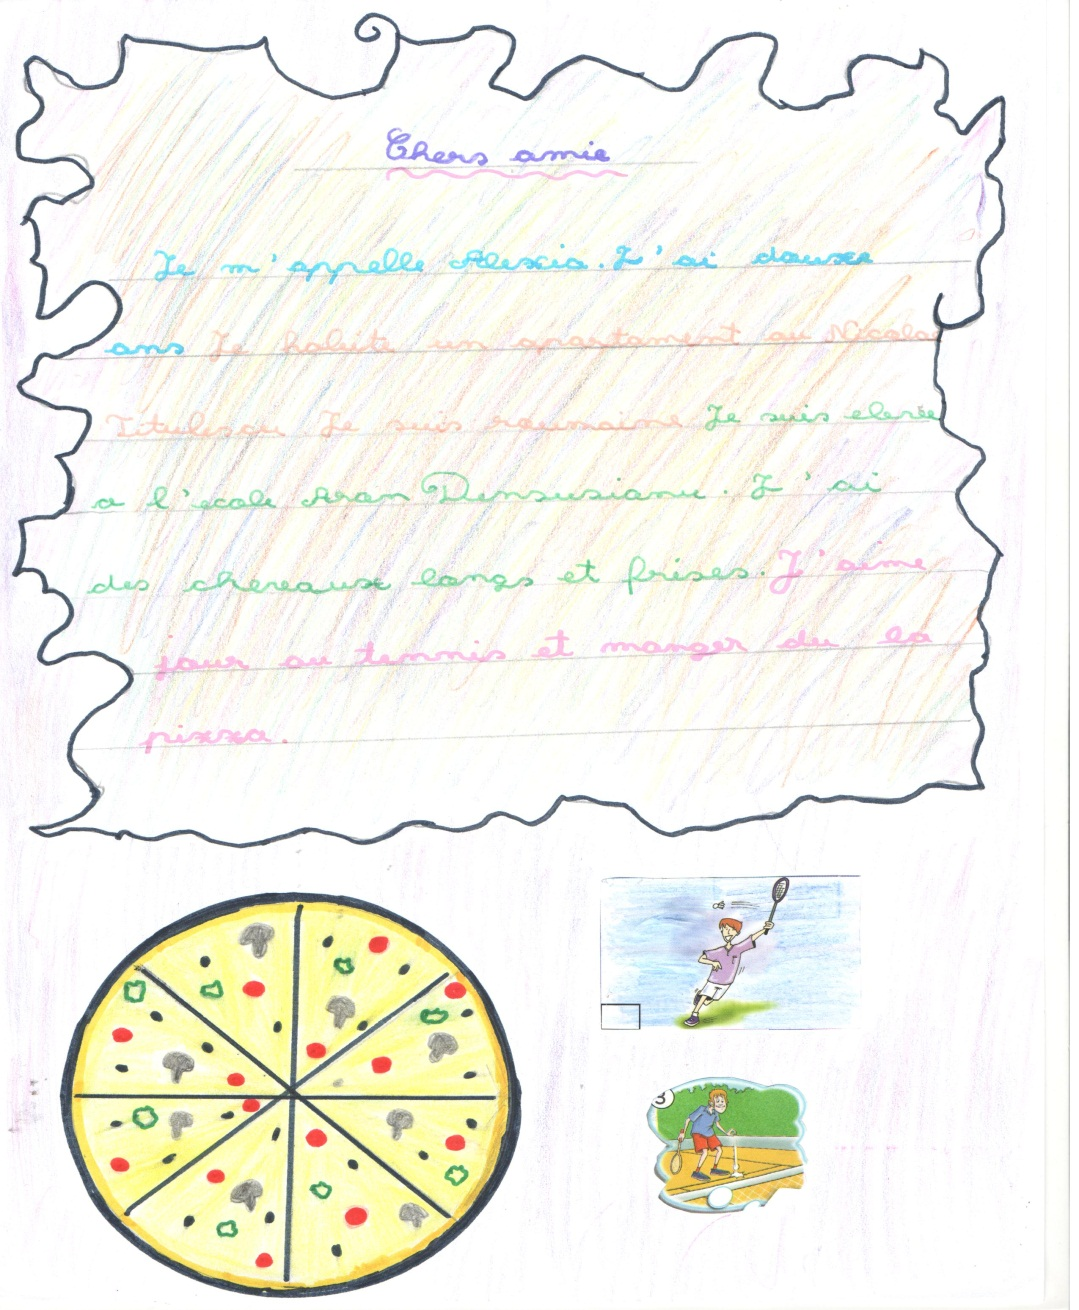 Chers amie
Je m'appelle Alexia. J'ai douxe
ans Je habite un apartament au Nicolae
Titulesqu Je suis roumaine Je suis elevée
a l'ecole Aran Densusianu. J'ai
des cheveaux longs et frises. J'aime
jouer au tennis et manger du la
pizza.
3